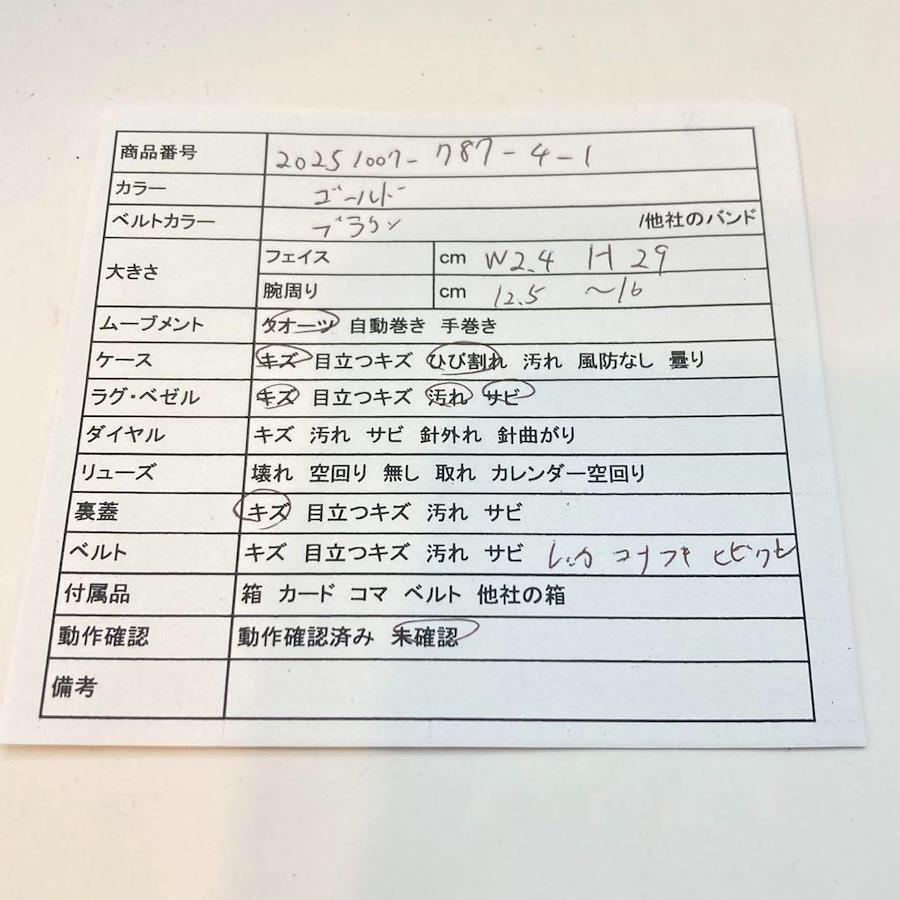 商品番号 20251007-787-4-1
カラー ゴールド
ベルトカラー ブラウン /他社のバンド
大きさ フェイス cm W2.4 H 29
腕周り cm 12.5 ～16
ムーブメント クオーツ 自動巻き 手巻き
ケース キズ 目立つキズ ひび割れ 汚れ 風防なし 曇り
ラグ・ベゼル キズ 目立つキズ 汚れ サビ
ダイヤル キズ 汚れ サビ 針外れ 針曲がり
リューズ 壊れ 空回り 無し 取れ カレンダー空回り
裏蓋 キズ 目立つキズ 汚れ サビ
ベルト キズ 目立つキズ 汚れ サビ
付属品 箱 カード コマ ベルト 他社の箱
動作確認 動作確認済み 未確認
備考